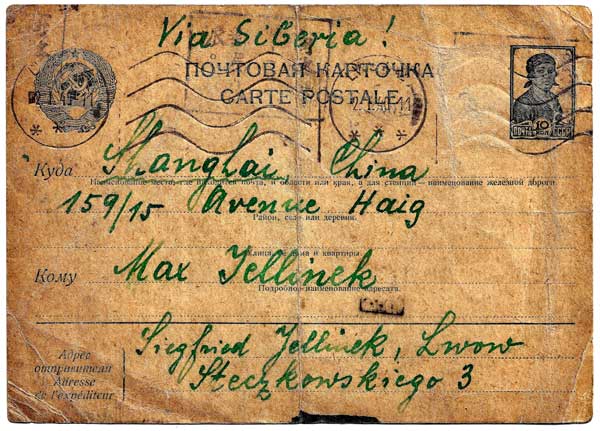 Via Siberia!
ПОЧТОВАЯ КАРТОЧКА
CARTE POSTALE
10
ПОЧТА СССР
Куда Shanghai, China
Наименование места, где находится почта, и области или края, а для станций — наименование железной дороги
159/15 Avenue Haig
Район, село или деревня.
Улица, № дома и квартиры.
Кому Max Jellinek
Подробное наименование адресата.
Siegfried Jellinek, Lwow
Steczkowskiego 3
Адрес
отправителя
Adresse
de l'expéditeur